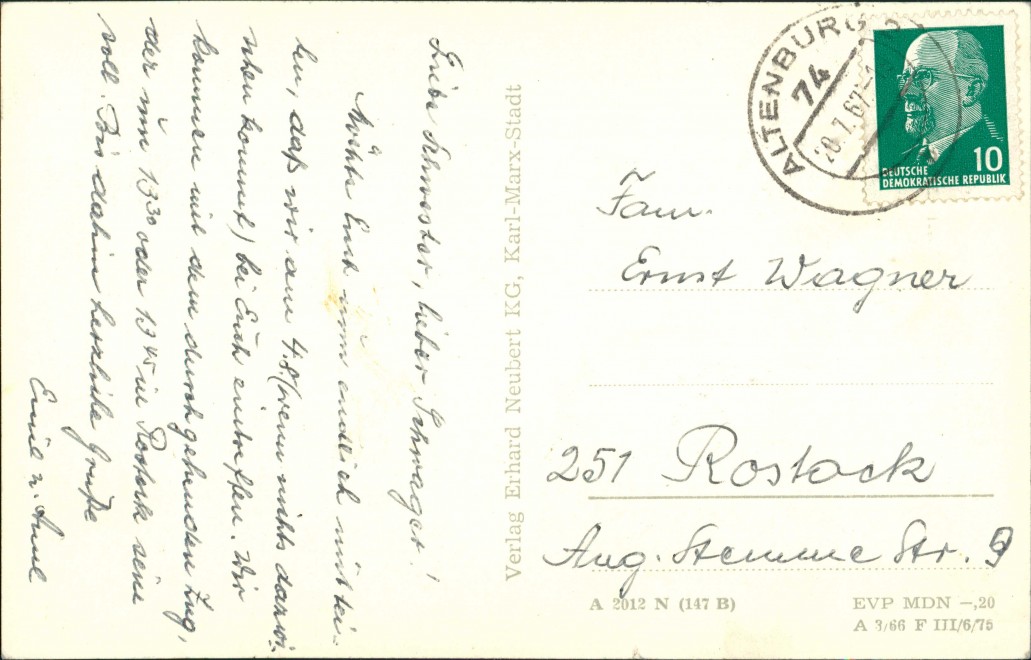 Liebe Schwester, lieber Schwager!
Möchte Euch nun endlich mittei-
len, daß wir am 4.8. (wenn nichts dazwi-
schen kommt) bei Euch eintreffen. Wir
kommen mit dem durchgehenden Zug,
der um 13³⁰ oder 13⁴⁵ in Rostock sein
soll. Bis dahin herzliche Grüße
Emil u. Anne
Verlag Erhard Neubert KG, Karl-Marx-Stadt
ALTENBURG 2
74
20.7.67
10
DEUTSCHE
DEMOKRATISCHE REPUBLIK
Fam.
Ernst Wagner
251 Rostock
Aug. Stemme Str. 9
A 2012 N (147 B)
EVP MDN –,20
A 3/66 F III/6/75